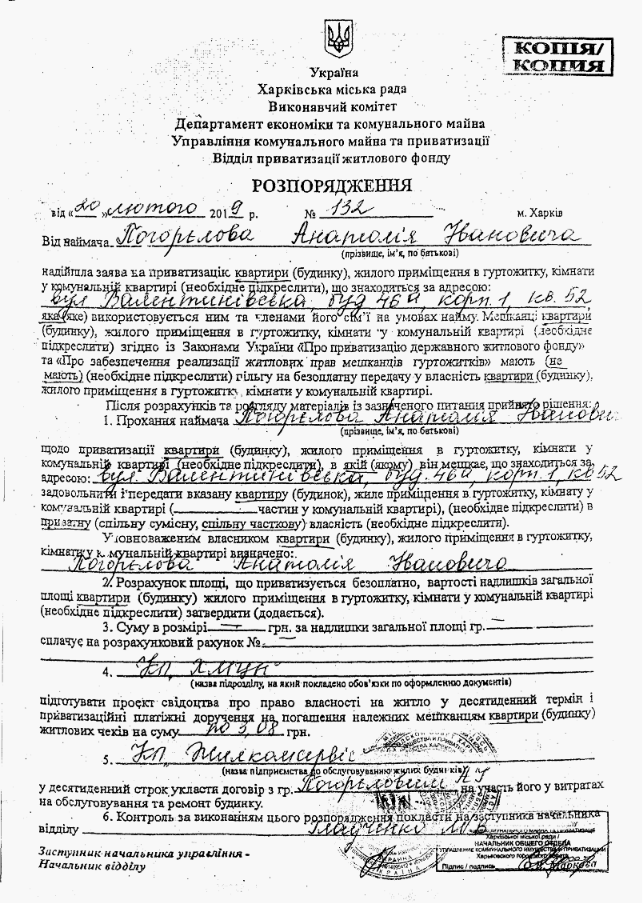 КОПІЯ/
КОПИЯ
Україна
Харківська міська рада
Виконавчий комітет
Департамент економіки та комунального майна
Управління комунального майна та приватизації
Відділ приватизації житлового фонду
РОЗПОРЯДЖЕННЯ
від «20» лютого 2019 р. № 132 м. Харків
Від наймача Погорєлова Анатолія Івановича
(прізвище, ім'я, по батькові)
надійшла заява на приватизацію квартири (будинку), жилого приміщення в гуртожитку, кімнати
у комунальній квартирі (необхідне підкреслити), що знаходиться за адресою:
вул Валентинівська, буд 46а, корп. 1, кв. 52
яка (яке) використовується ним та членами його сім'ї на умовах найму. Мешканці квартири
(будинку), жилого приміщення в гуртожитку, кімнати у комунальній квартирі (необхідне
підкреслити) згідно із Законами України «Про приватизацію державного житлового фонду»
та «Про забезпечення реалізації житлових прав мешканців гуртожитків» мають (не
мають) (необхідне підкреслити) пільгу на безоплатну передачу у власність квартири (будинку),
жилого приміщення в гуртожитку, кімнати у комунальній квартирі.
Після розрахунків та розгляду матеріалів із зазначеного питання прийнято рішення:
1. Прохання наймача Погорєлова Анатолія Іванович
(прізвище, ім'я, по батькові)
щодо приватизації квартири (будинку), жилого приміщення в гуртожитку, кімнати у
комунальній квартирі (необхідне підкреслити), в якій (якому) він мешкає, що знаходиться за
адресою: вул. Валентинівська, буд. 46а, корп. 1, кв 52
задовольнити і передати вказану квартиру (будинок), жиле приміщення в гуртожитку, кімнату у
комунальній квартирі ( частин у комунальній квартирі), (необхідне підкреслити) в
приватну (спільну сумісну, спільну часткову) власність (необхідне підкреслити).
Уповноваженим власником квартири (будинку), жилого приміщення в гуртожитку,
кімнати у комунальній квартирі визначено:
Погорєлова Анатолія Івановича
2. Розрахунок площі, що приватизується безоплатно, вартості надлишків загальної
площі квартири (будинку) жилого приміщення в гуртожитку, кімнати у комунальній квартирі
(необхідне підкреслити) затвердити (додається).
3. Суму в розмірі — грн. за надлишки загальної площі гр. —
сплачує на розрахунковий рахунок № —
4. КП ХМЦН
(назва підрозділу, на який покладено обов'язки по оформленню документів)
підготувати проєкт свідоцтва про право власності на житло у десятиденний термін і
приватизаційні платіжні доручення на погашення належних мешканцям квартири (будинку)
житлових чеків на суму по 3,08 грн.
5. КП Жилкомсервіс
(назва підприємства по обслуговуванню жилих будинків)
у десятиденний строк укласти договір з гр. Погорєловим на участь його у витратах
на обслуговування та ремонт будинку.
6. Контроль за виконанням цього розпорядження покласти на заступника начальника
відділу
Заступник начальника управління -
Начальник відділу
Харківської міської ради /
НАЧАЛЬНИК ОБЩЕГО ОТДЕЛА
УПРАВЛЕНИЕ КОММУНАЛЬНОГО ИМУЩЕСТВА И ПРИВАТИЗАЦИИ
Харьковского городского совета
Підпис / подпись